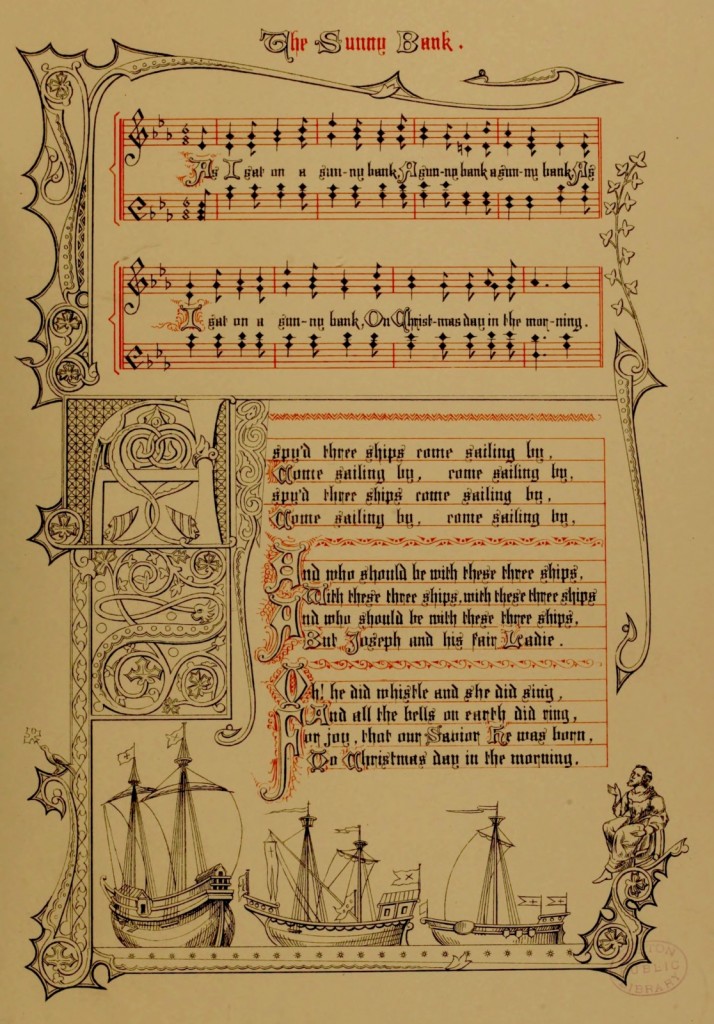 The Sunny Bank.
As I sat on a sun-ny bank, A sun-ny bank a sun-ny bank, As
I sat on a sun-ny bank, On Christ-mas day in the mor-ning.
I
spy'd three ships come sailing by,
Come sailing by, come sailing by,
spy'd three ships come sailing by,
Come sailing by, come sailing by,
And who should be with these three ships,
With these three ships, with these three ships
And who should be with these three ships,
But Joseph and his fair Ladie.
Oh! he did whistle and she did sing,
And all the bells on earth did ring,
For joy, that our Savior He was born,
To Christmas day in the morning.
PUBLIC
LIBRARY